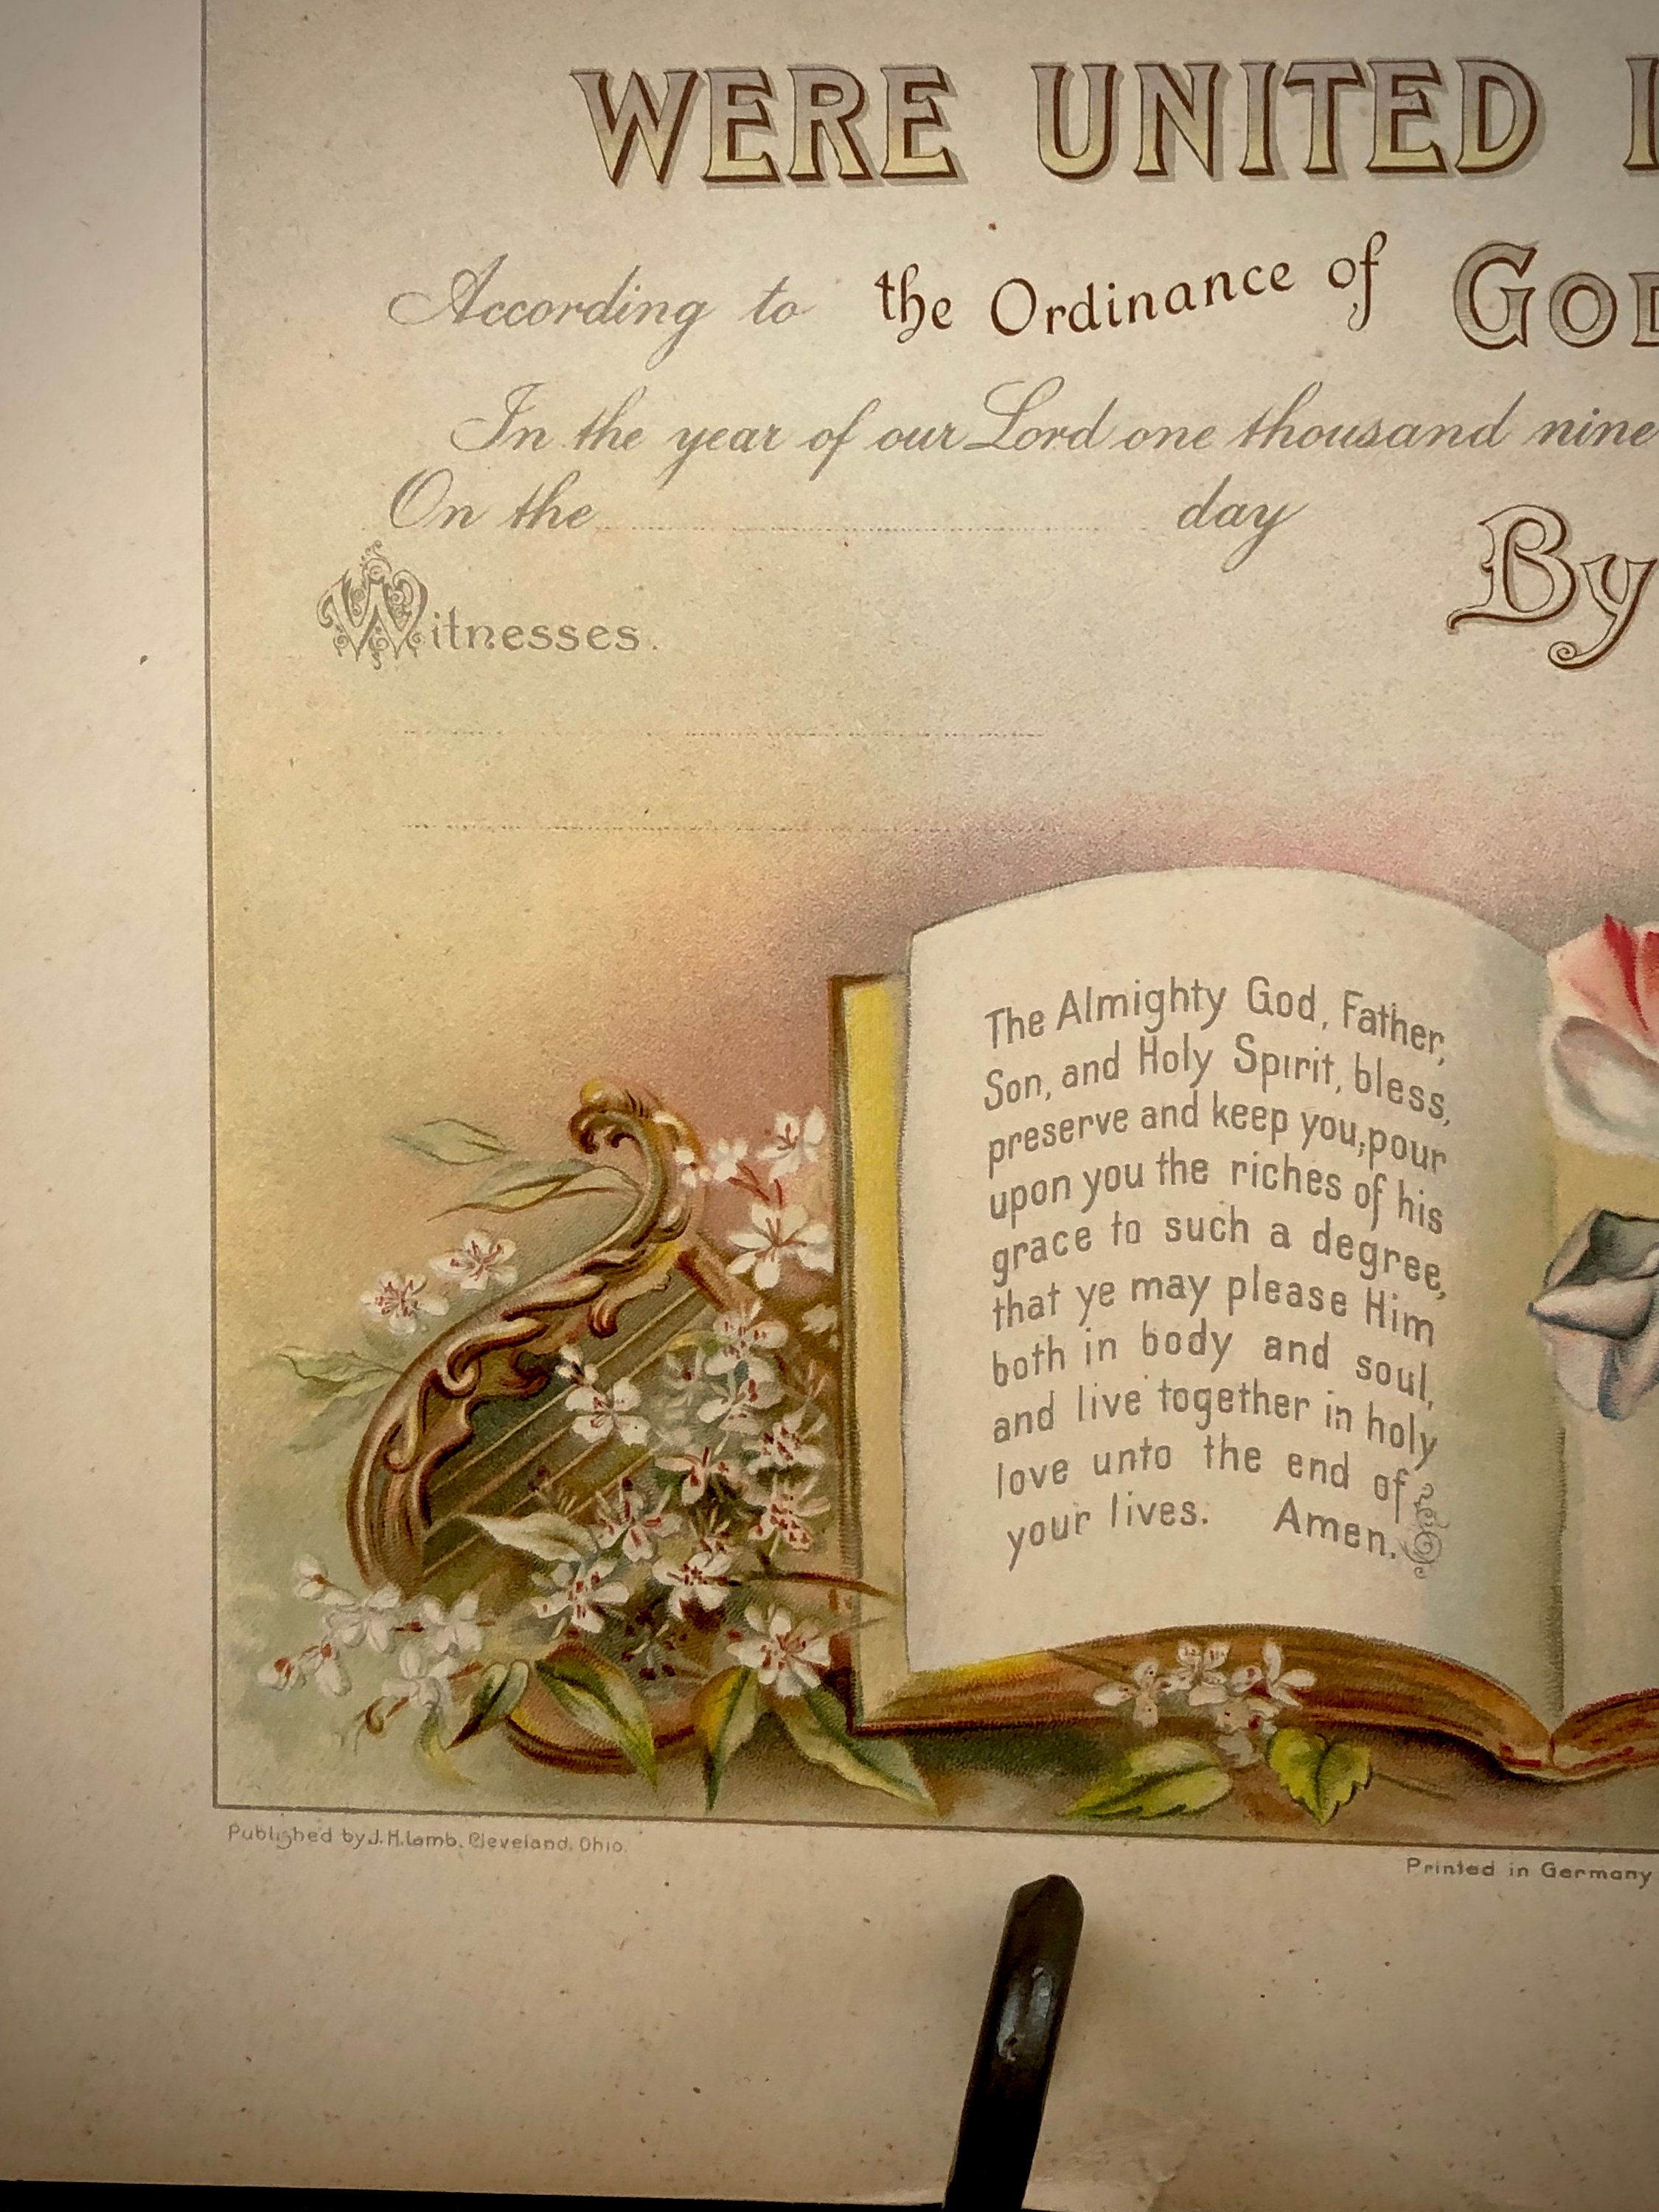 WERE UNITED
According to the Ordinance of GOD
In the year of our Lord one thousand nine
On the day
By
Witnesses.
The Almighty God, Father,
Son, and Holy Spirit, bless,
preserve and keep you; pour
upon you the riches of his
grace to such a degree,
that ye may please Him
both in body and soul,
and live together in holy
love unto the end of
your lives. Amen.
Published by J. H. Lamb, Cleveland, Ohio.
Printed in Germany